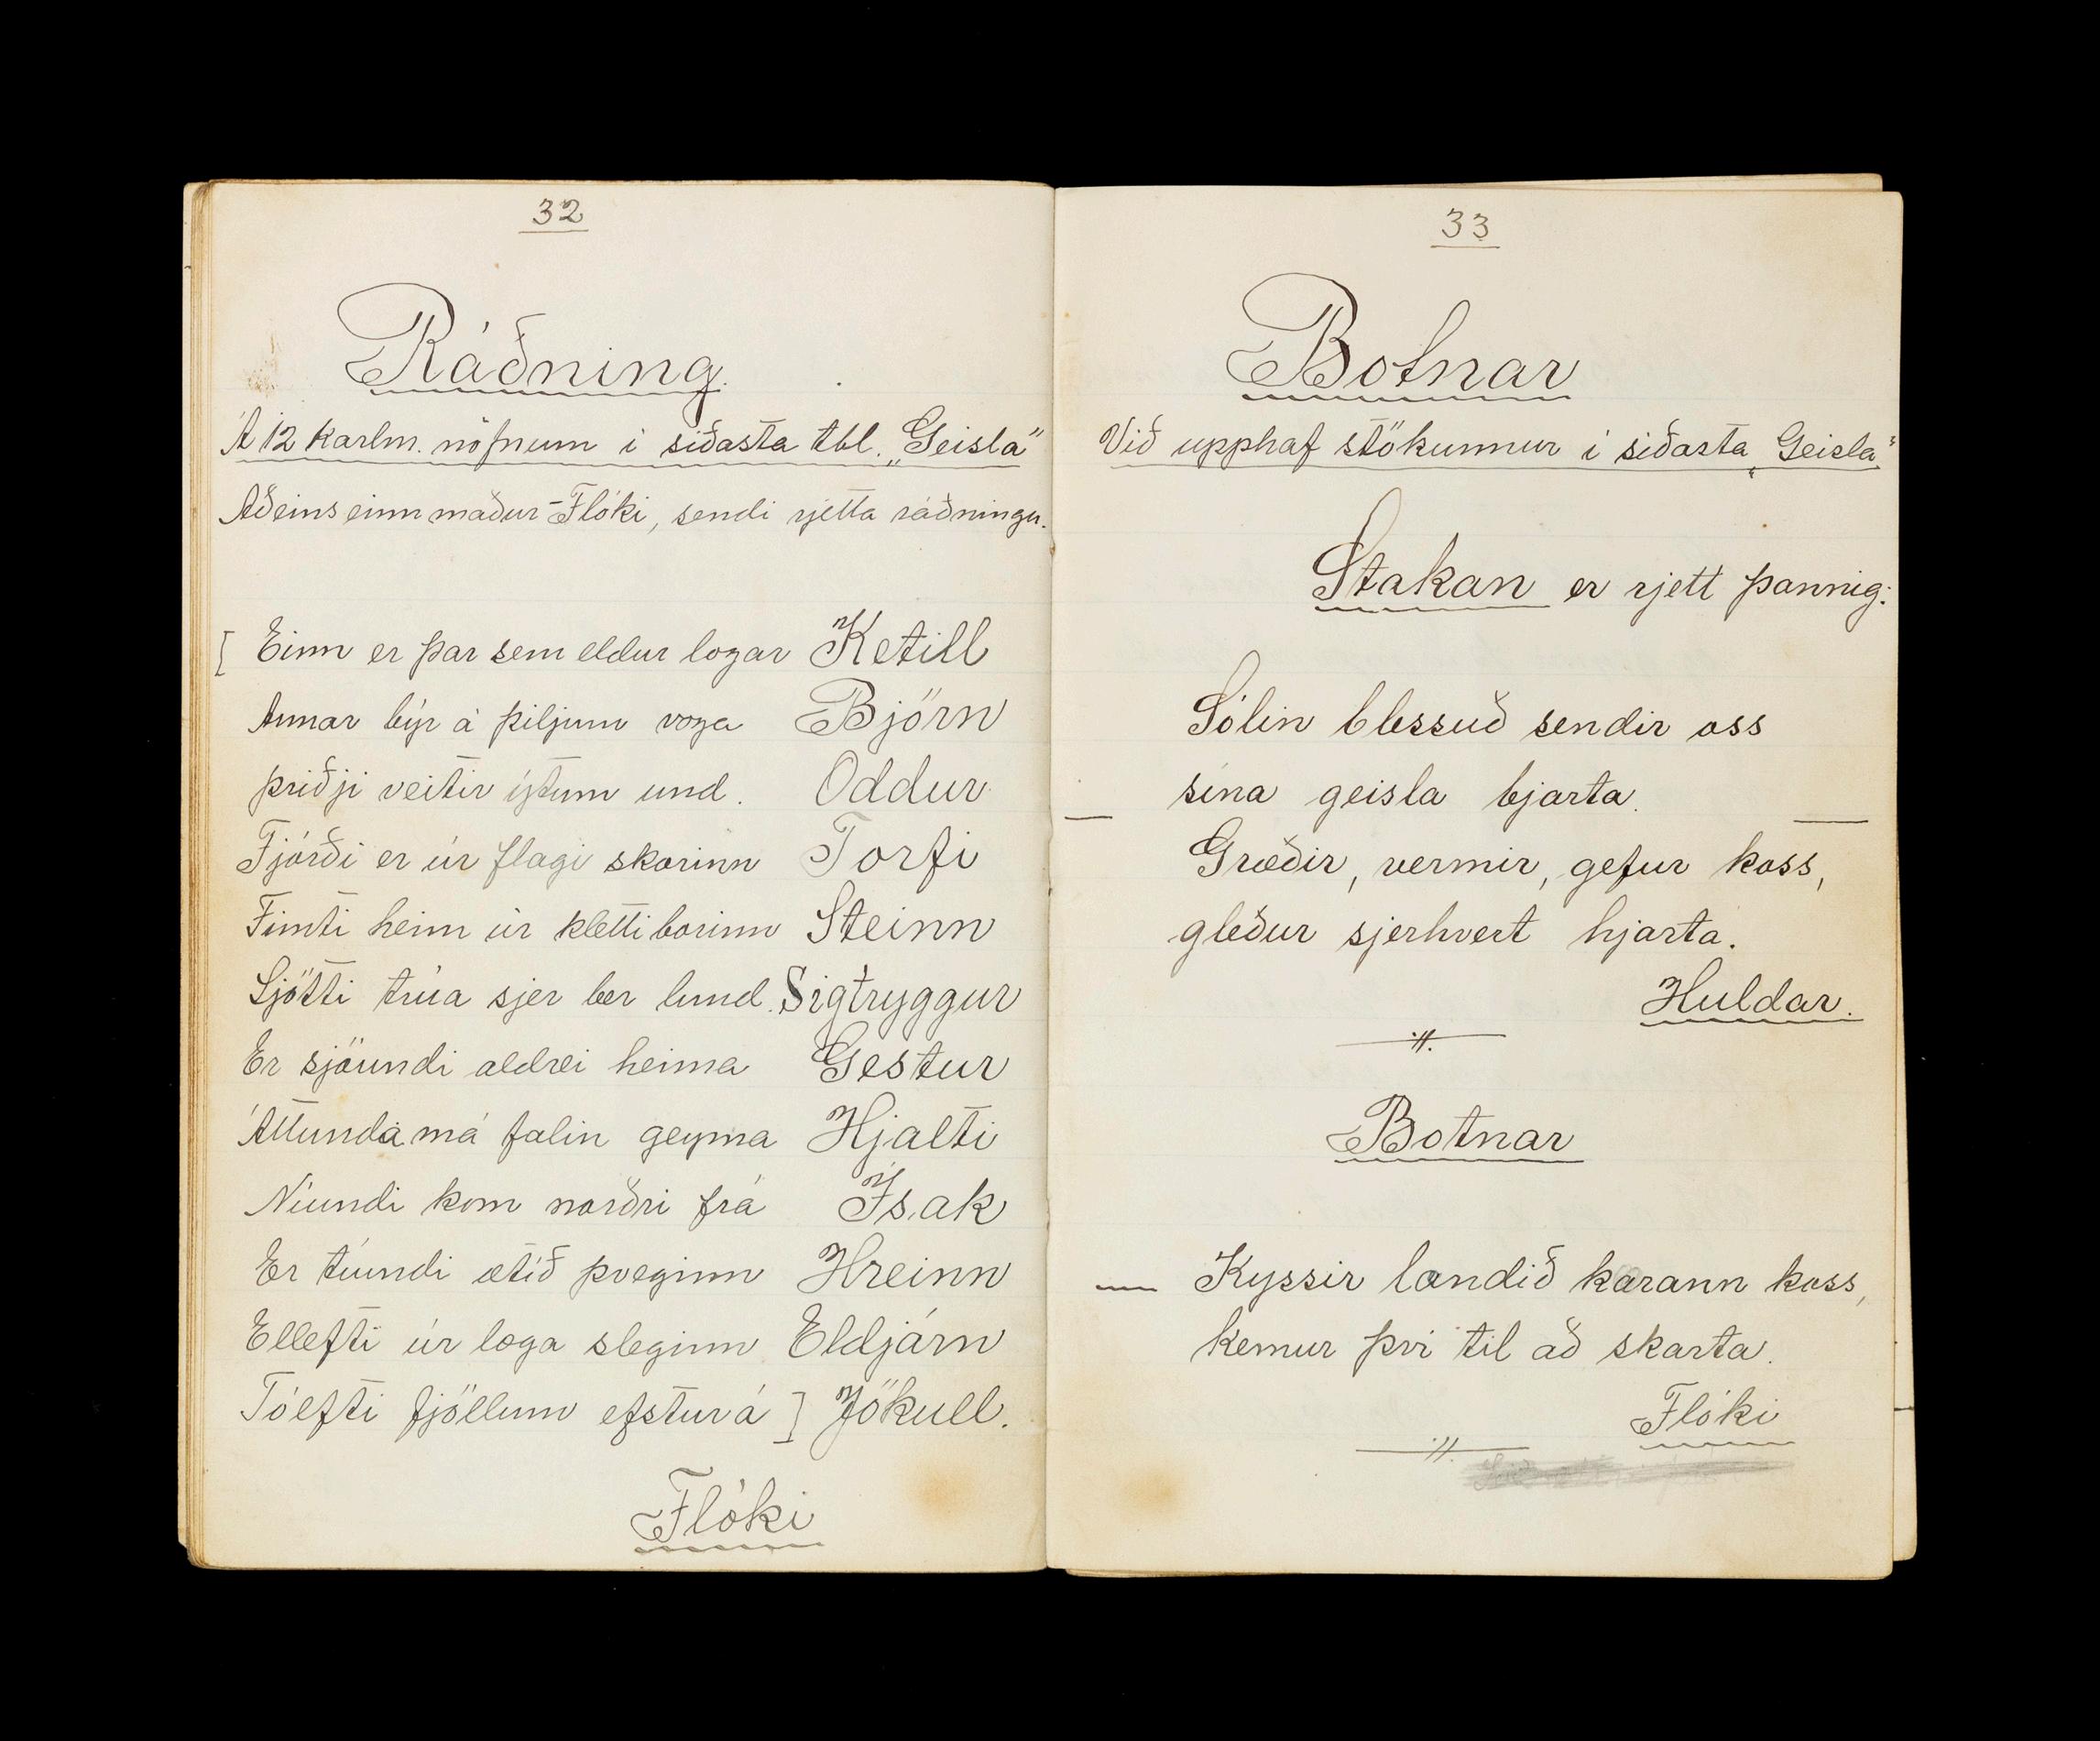 32
Ráðning.
Á 12 karlm. nöfnum í síðasta tbl. „Geisla"
Aðeins einn maður - Flóki, sendi rjetta ráðningu.
[ Einn er þar sem eldur logar Ketill
Annar býr á þiljum voga Björn
þriðji veitir ýtum und. Oddur
Fjórði er úr flagi skorinn Torfi
Fimti heim úr kletti borinn Steinn
Sjötti trúa sjer ber lund. Sigtryggur
Er sjöundi aldrei heima Gestur
Áttunda má falin geyma Hjalti
Níundi kom norðri frá Ísak
Er tíundi ætíð þveginn Hreinn
Ellefti úr loga sleginn Eldjárn
Tólfti fjöllum efstur á ] Jökull.
Flóki
33
Botnar
Við upphaf stökunnur í síðasta „Geisla"
Stakan er rjett þannig:
Sólin blessuð sendir oss
sína geisla bjarta.
Græðir, vermir, gefur koss,
gleður sjerhvert hjarta.
Huldar.
Botnar
— Kyssir landið karann koss,
kemur því til að skarta.
Flóki